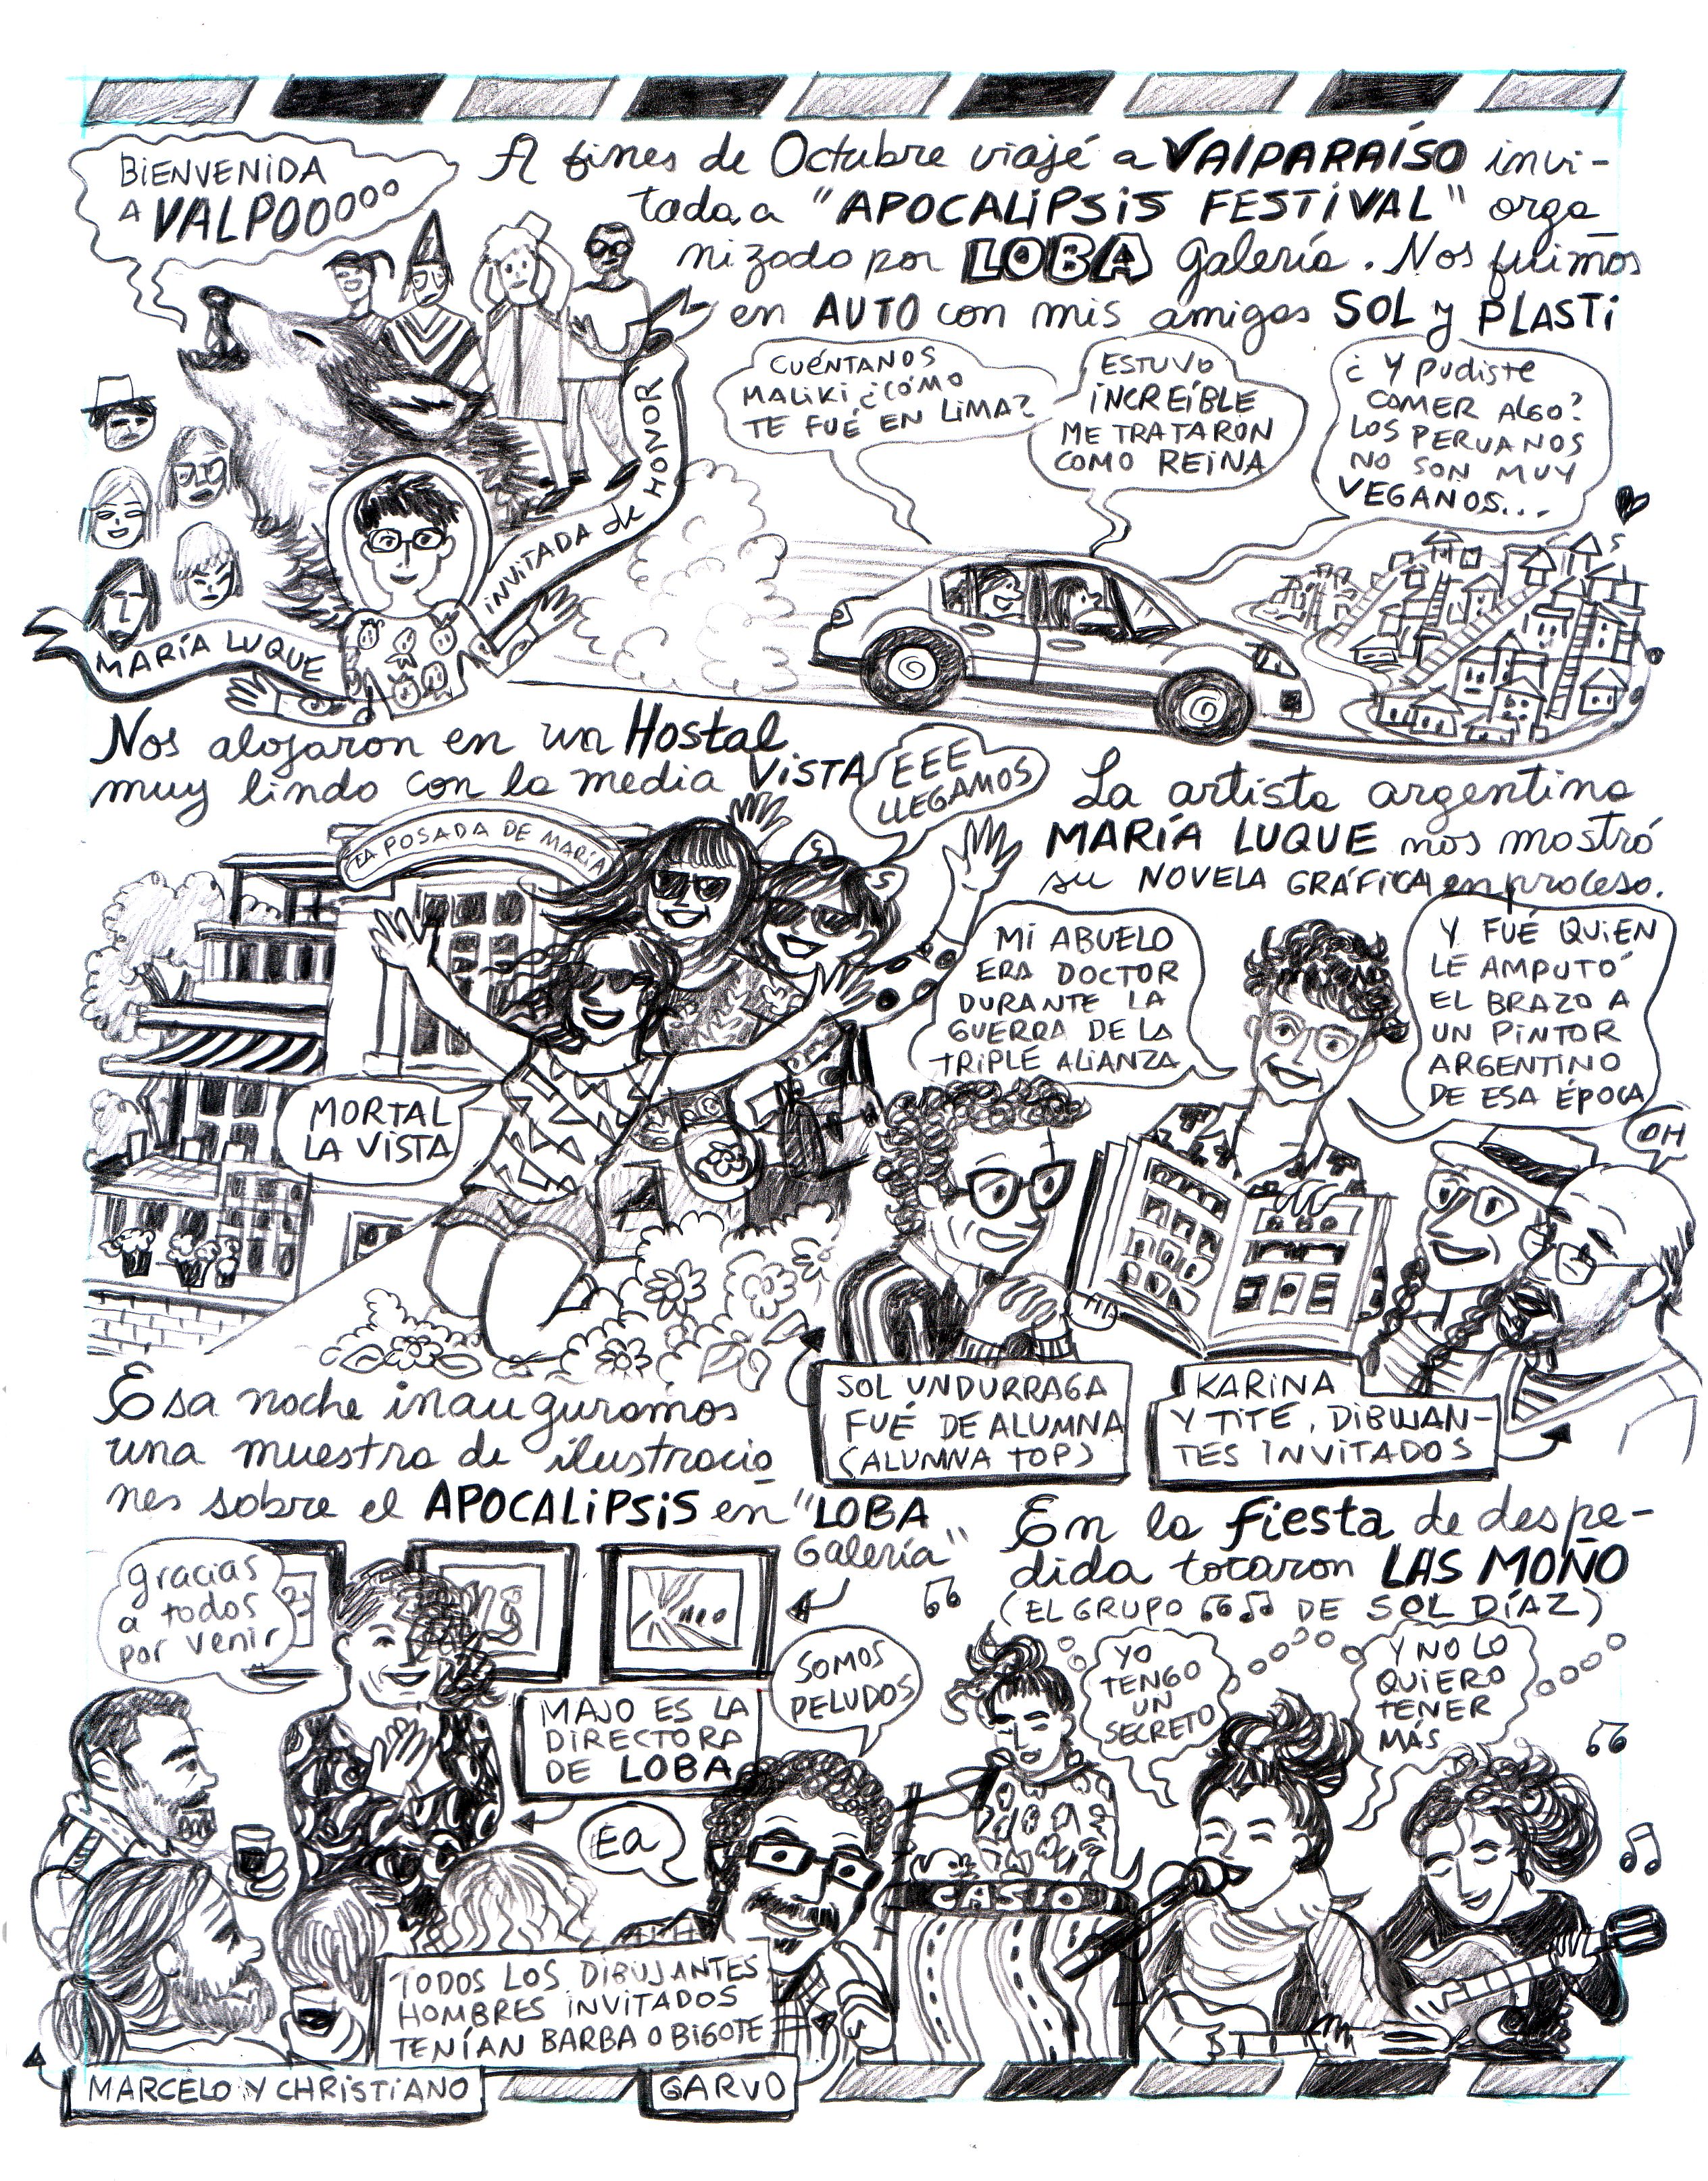 BIENVENIDA
A VALPOOOOOO
A fines de Octubre viajé a VALPARAÍSO invi-
tada a "APOCALIPSIS FESTIVAL" orga
nizado por LOBA galería. Nos fuimos
en AUTO con mis amigos SOL y PLASTI
CUÉNTANOS
MALIKI ¿CÓMO
TE FUÉ EN LIMA?
ESTUVO
INCREÍBLE
ME TRATARON
COMO REINA
¿ Y PUDISTE
COMER ALGO?
LOS PERUANOS
NO SON MUY
VEGANOS...
MARÍA LUQUE
INVITADA de HONOR
Nos alojaron en un Hostal
muy lindo con la media VISTA
LA POSADA DE MARÍA
EEE
LLEGAMOS
MORTAL
LA VISTA
La artista argentina
MARÍA LUQUE nos mostró
su NOVELA GRÁFICA en proceso.
MI ABUELO
ERA DOCTOR
DURANTE LA
GUERRA DE LA
TRIPLE ALIANZA
Y FUÉ QUIEN
LE AMPUTÓ
EL BRAZO A
UN PINTOR
ARGENTINO
DE ESA ÉPOCA
OH
SOL UNDURRAGA
FUÉ DE ALUMNA
(ALUMNA TOP)
KARINA
Y TITE, DIBUJAN-
TES INVITADOS
Esa noche inauguramos
una muestra de ilustracio
nes sobre el APOCALIPSIS en "LOBA
Galería"
gracias
a todos
por venir
MAJO ES LA
DIRECTORA
DE LOBA
SOMOS
PELUDOS
Ea
TODOS LOS DIBUJANTES
HOMBRES INVITADOS
TENÍAN BARBA O BIGOTE
MARCELO Y CHRISTIANO
GARVO
En la fiesta de despe-
dida tocaron LAS MOÑO
(EL GRUPO DE SOL DÍAZ)
YO
TENGO
UN
SECRETO
Y NO LO
QUIERO
TENER
MÁS
CASIO